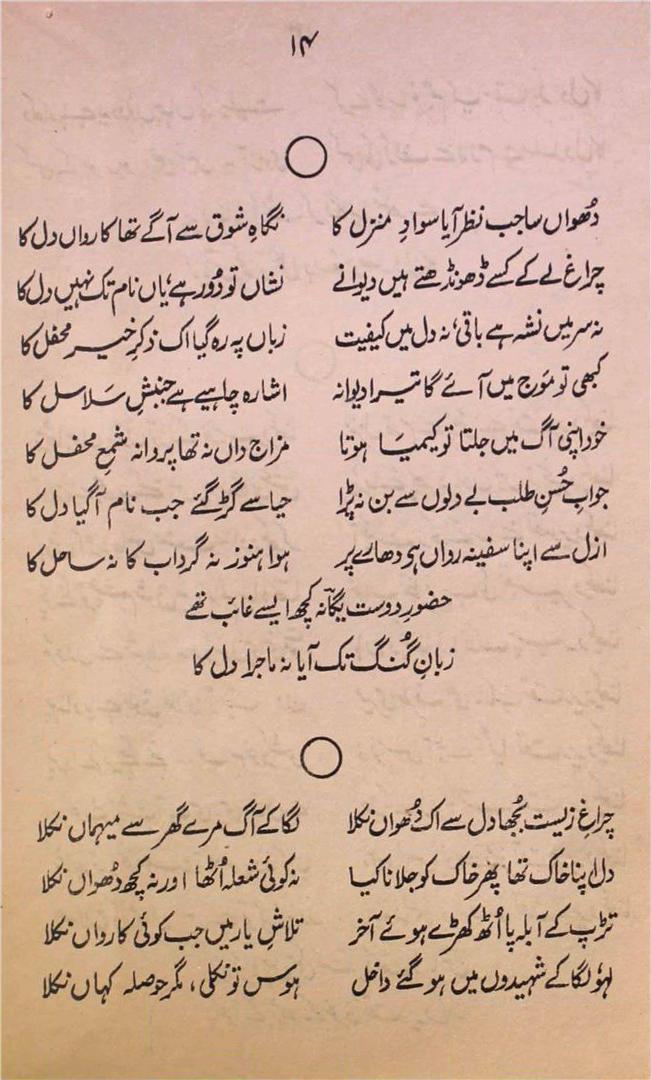 ۱۴
دُھواں سا جب نظر آیا سوادِ منزل کا نگاہِ شوق سے آگے تھا کارواں دل کا
چراغ لے کے کسے ڈھونڈھتے ہیں دیوانے نشاں تو دُور ہے، یاں نام تک نہیں دل کا
نہ سر میں نشہ ہے باقی، نہ دل میں کیفیت زباں پہ رہ گیا اک ذکرِ خیر محفل کا
کبھی تو مَوج میں آئے گا تیرا دیوانہ اشارہ چاہیے ہے جنبشِ سَلاسل کا
خود اپنی آگ میں جلتا تو کیمیَا ہوتا مزاج داں نہ تھا پروانہ شمعِ محفل کا
جوابِ حُسنِ طلب بے دلوں سے بن نہ پڑا حیا سے گڑ گئے جب نام آگیا دل کا
ازل سے اپنا سفینہ رواں ہی دھارے پر ہوا ہنوز نہ گرداب کا نہ ساحل کا
حضورِ دوست یگانہؔ کچھ ایسے غائب تھے
زبانِ گُنگ تک آیا نہ ماجرا دل کا
چراغِ زیست بُجھا دل سے اک دُھواں نکلا لگا کے آگ مرے گھر سے میہماں نکلا
دل اپنا خاک تھا پھر خاک کو جلانا کیا نہ کوئی شعلہ اُٹھا اور نہ کچھ دُھواں نکلا
تڑپ کے آبلہ پا اُٹھ کھڑے ہوئے آخر تلاشِ یار میں جب کوئی کارواں نکلا
لہُو لگا کے شہیدوں میں ہو گئے داخل ہوس تو نکلی، مگر حوصلہ کہاں نکلا